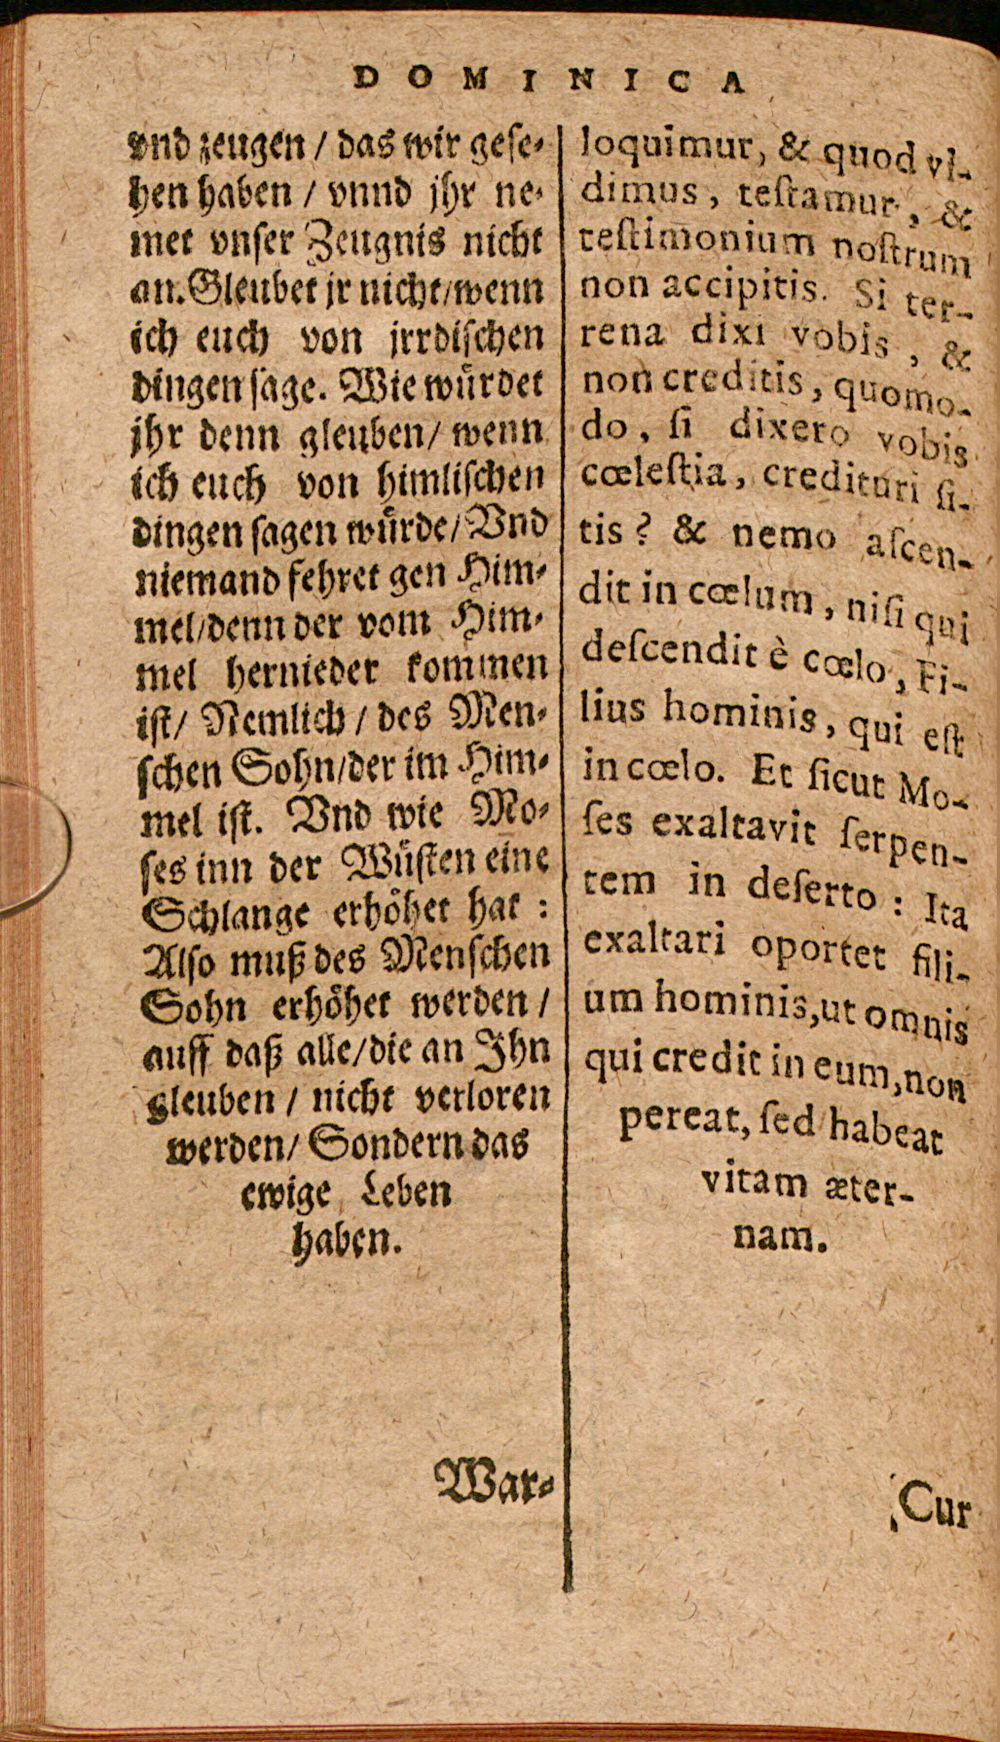 DOMINICA
vnd zeugen / das wir gese-
hen haben / vnnd jhr ne-
met vnser Zeugnis nicht
an. Gleubet jr nicht / wenn
ich euch von jrrdischen
dingen sage. Wie würdet
jhr denn gleuben / wenn
ich euch von himlischen
dingen sagen würde / Vnd
niemand fehret gen Him-
mel / denn der vom Him-
mel hernieder kommen
ist / Nemlich / des Men-
schen Sohn / der im Him-
mel ist. Vnd wie Mo-
ses inn der Wüsten eine
Schlange erhöhet hat :
Also muß des Menschen
Sohn erhöhet werden /
auff daß alle / die an Ihn
gleuben / nicht verloren
werden / Sondern das
ewige Leben
haben.
War-
loquimur, & quod vi-
dimus, teſtamur, &
teſtimonium noſtrum
non accipitis. Si ter-
rena dixi vobis, &
non creditis, quomo-
do, ſi dixero vobis
cœleſtia, credituri ſi-
tis? & nemo aſcen-
dit in cœlum, niſi qui
deſcendit è cœlo, Fi-
lius hominis, qui eſt
in cœlo. Et ſicut Mo-
ſes exaltavit ſerpen-
tem in deſerto : Ita
exaltari oportet fili-
um hominis, ut omnis
qui credit in eum, non
pereat, ſed habeat
vitam æter-
nam.
Cur